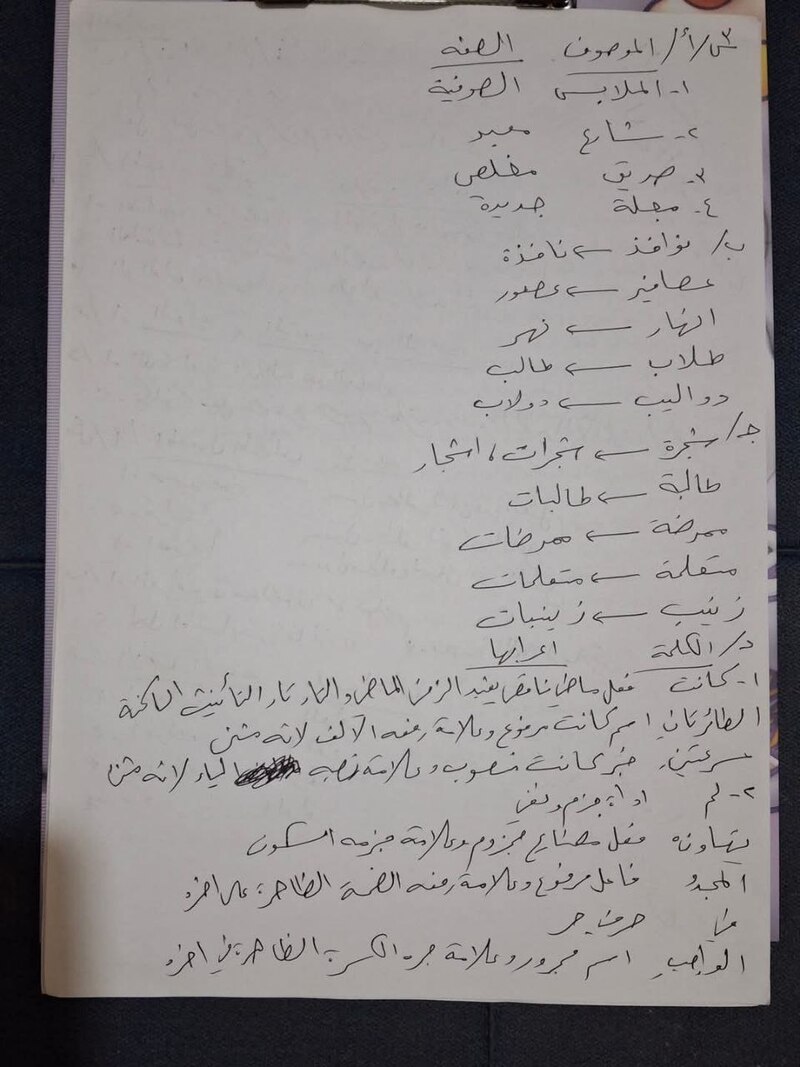 س٣/أ/ الموصوف الصفه
١- الملابس الصوفية
٢- شارع معبد
٣- صديق مخلص
٤- مجلة جديدة
ب/ نوافذ ← نافذة
عصافير ← عصفور
انهار ← نهر
طلاب ← طالب
دواليب ← دولاب
جـ/ شجرة ← شجرات، اشجار
طالبة ← طالبات
ممرضة ← ممرضات
متعلمة ← متعلمات
زينب ← زينبات
د/ الكلمة اعرابها
١- كانت فعل ماضي ناقص يفيد الزمن الماضي والتاء تاء التأنيث الساكنة
الطائرتان اسم كانت مرفوع وعلامة رفعه الألف لانه مثنى
سريعتين خبر كانت منصوب وعلامة نصبه الياء لانه مثنى
٢- لم اداة جزم ونفي
يتهاون فعل مضارع مجزوم وعلامة جزمه السكون
المجدُ فاعل مرفوع وعلامة رفعه الضمة الظاهرة على اخره
في حرف جر
الواجبِ اسم مجرور وعلامة جره الكسرة الظاهرة في اخره